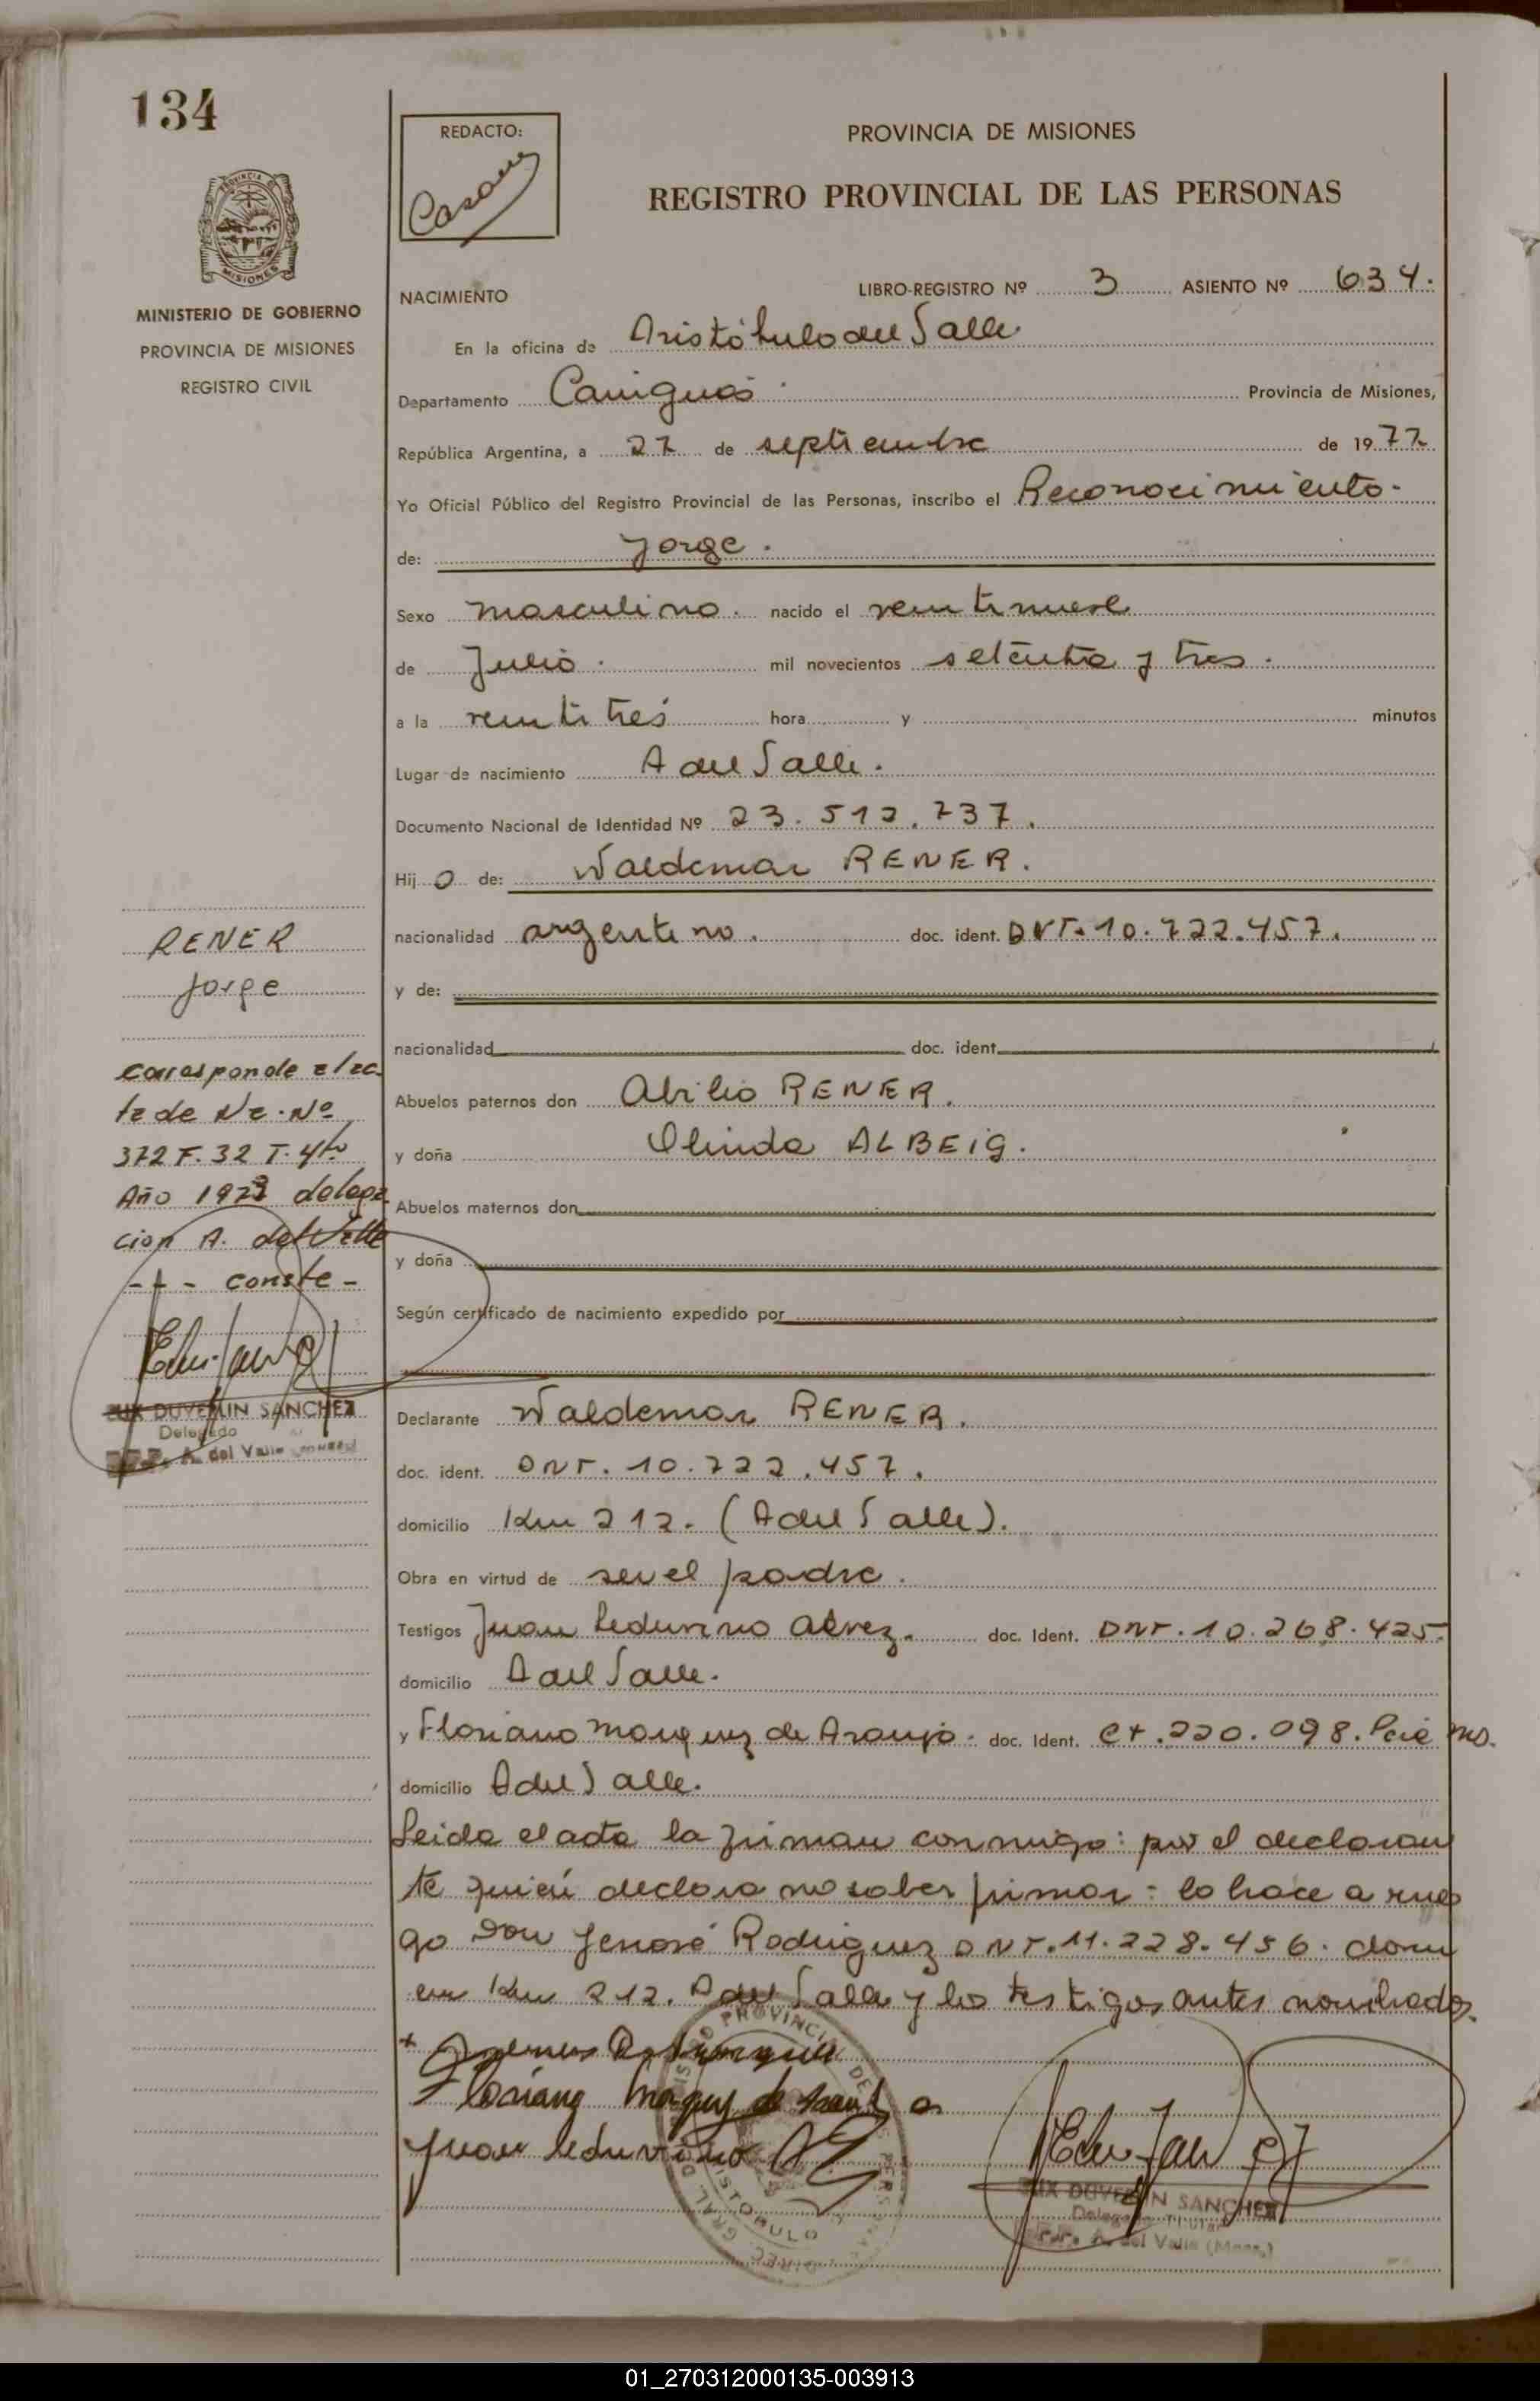 134
REDACTO:
PROVINCIA DE MISIONES
REGISTRO PROVINCIAL DE LAS PERSONAS
PROVINCIA DE
MISIONES
MINISTERIO DE GOBIERNO
PROVINCIA DE MISIONES
REGISTRO CIVIL
NACIMIENTO LIBRO-REGISTRO Nº 3 ASIENTO Nº 634.
En la oficina de Aristóbulo del Valle
Departamento Cainguás Provincia de Misiones,
República Argentina, a 27 de septiembre de 1977
Yo Oficial Público del Registro Provincial de las Personas, inscribo el Reconocimiento-
de: Jorge.
Sexo masculino. nacido el veintinueve
de Julio. mil novecientos setenta y tres.
a la veintitrés hora y minutos
Lugar de nacimiento A del Valle.
Documento Nacional de Identidad Nº 23.512.737.
Hij o de: Waldemar RENER.
nacionalidad argentino. doc. ident. DNI. 10.722.457.
y de:
nacionalidad doc. ident.
Abuelos paternos don Abilio RENER.
y doña Olinda ALBEIG.
Abuelos maternos don
y doña
Según certificado de nacimiento expedido por
RENER
Jorge
corresponde al ac
ta de Na. Nº
372 F. 32 T. 4to
Año 1973 delega
cion A. del Valle
-+- conste-
DUVELIN SANCHEZ
Delegado
A. del Valle
Declarante Waldemar RENER.
doc. ident. DNI. 10.722.457.
domicilio Km 212. (A del Valle).
Obra en virtud de ser el padre.
Testigos Juan Leduvino Alvez. doc. Ident. DNI. 10.268.425.
domicilio A del Valle.
y Floriano Marquez de Araujo. doc. Ident. CI. 220.098. Pcia Ms.
domicilio A del Valle.
Leida el acta la firman conmigo: por el declaran
te quien declara no saber firmar - lo hace a rue
go Don Jenaro Rodriguez DNI. 11.228.456. domi
en Km 212. A del Valle y los testigos antes nombrados.
Juan Leduvino
DUVELIN SANCHEZ
Delegado Titular
A. del Valle (Mnes.)
01_270312000135-003913